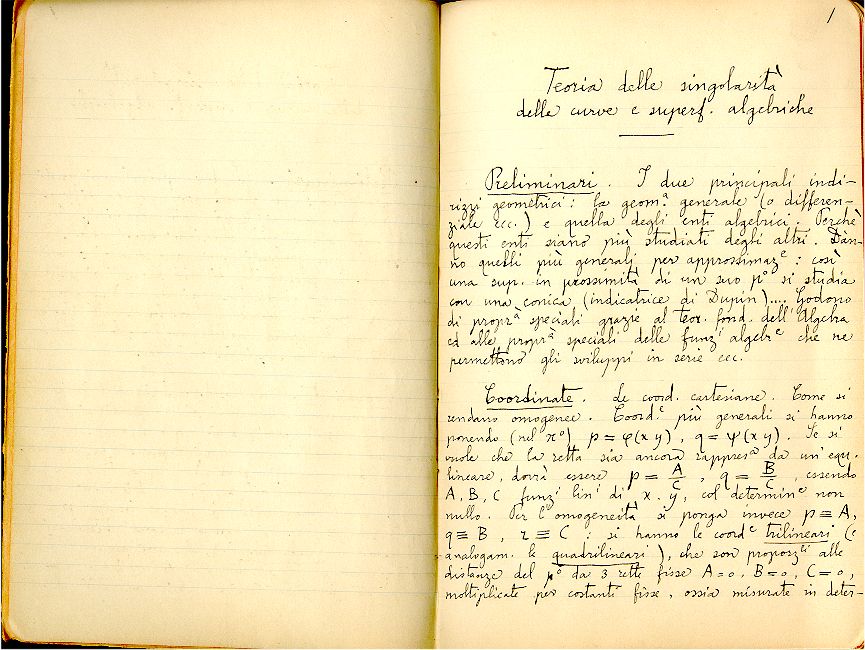 1
Teoria delle singolarità
delle curve e superf. algebriche
Preliminari. I due principali indi-
rizzi geometrici: la geom.ª generale (o differen-
ziale ecc.) e quella degli enti algebrici. Perchè
questi enti siano più studiati degli altri. Dàn-
no quelli più generali per approssimaz.e: così
una sup. in prossimità di un suo pº si studia
con una conica (indicatrice di Dupin).... Godono
di propr.à speciali grazie al teor. fond. dell'Algebra
ed alle propr.à speciali delle funz.i algebr.e che ne
permettono gli sviluppi in serie ecc.
Coordinate. Le coord. cartesiane. Come si
rendano omogenee. Coord.e più generali si hanno
ponendo (nel πº) p = φ(x y), q = ψ(x y). Se si
vuole che la retta sia ancora rappres.ª da un'equ.
lineare, dovrà essere p = A/C, q = B/C, essendo
A, B, C funz.i lin.i di x, y, col determin.e non
nullo. Per l'omogeneità si ponga invece p ≡ A,
q ≡ B, r ≡ C: si hanno le coord.e trilineari (e
analogam. le quadrilineari), che son proporz.li alle
distanze del pº da 3 rette fisse A=0, B=0, C=0,
moltiplicate per costanti fisse, ossia misurate in deter-